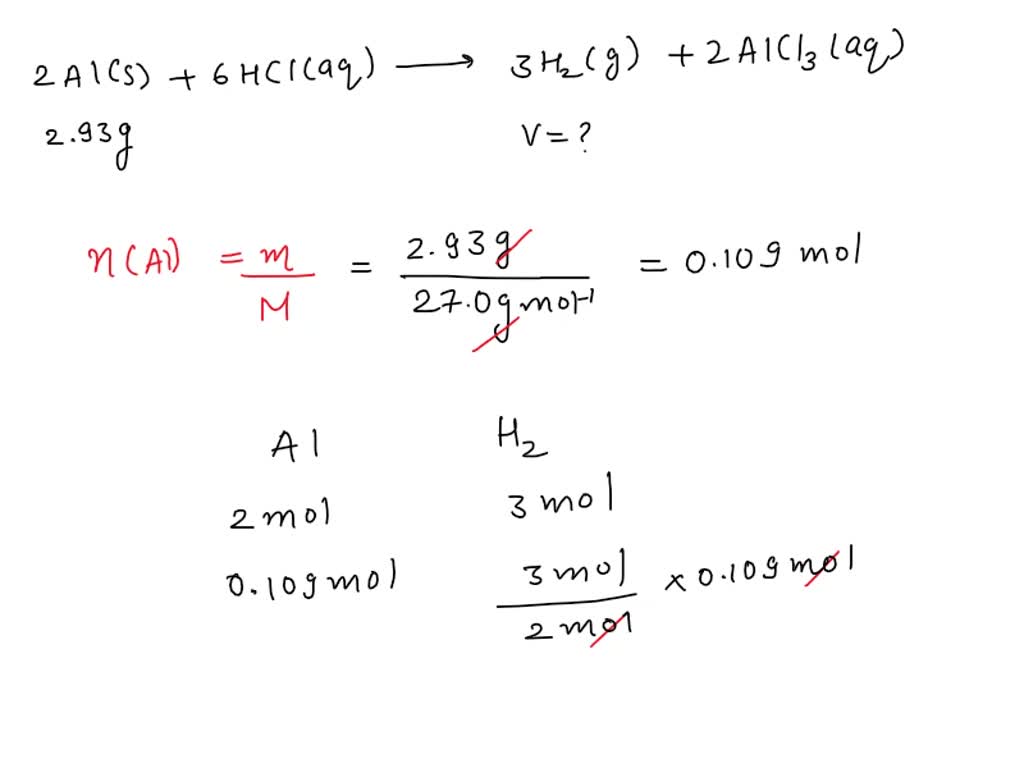 2Al(s) + 6HCl(aq) ⟶ 3H₂(g) + 2AlCl₃(aq)
2.93g V=?
n(Al) = m/M = 2.93g/27.0gmol⁻¹ = 0.109 mol
Al H₂
2mol 3mol
0.109mol 3mol/2mol × 0.109mol